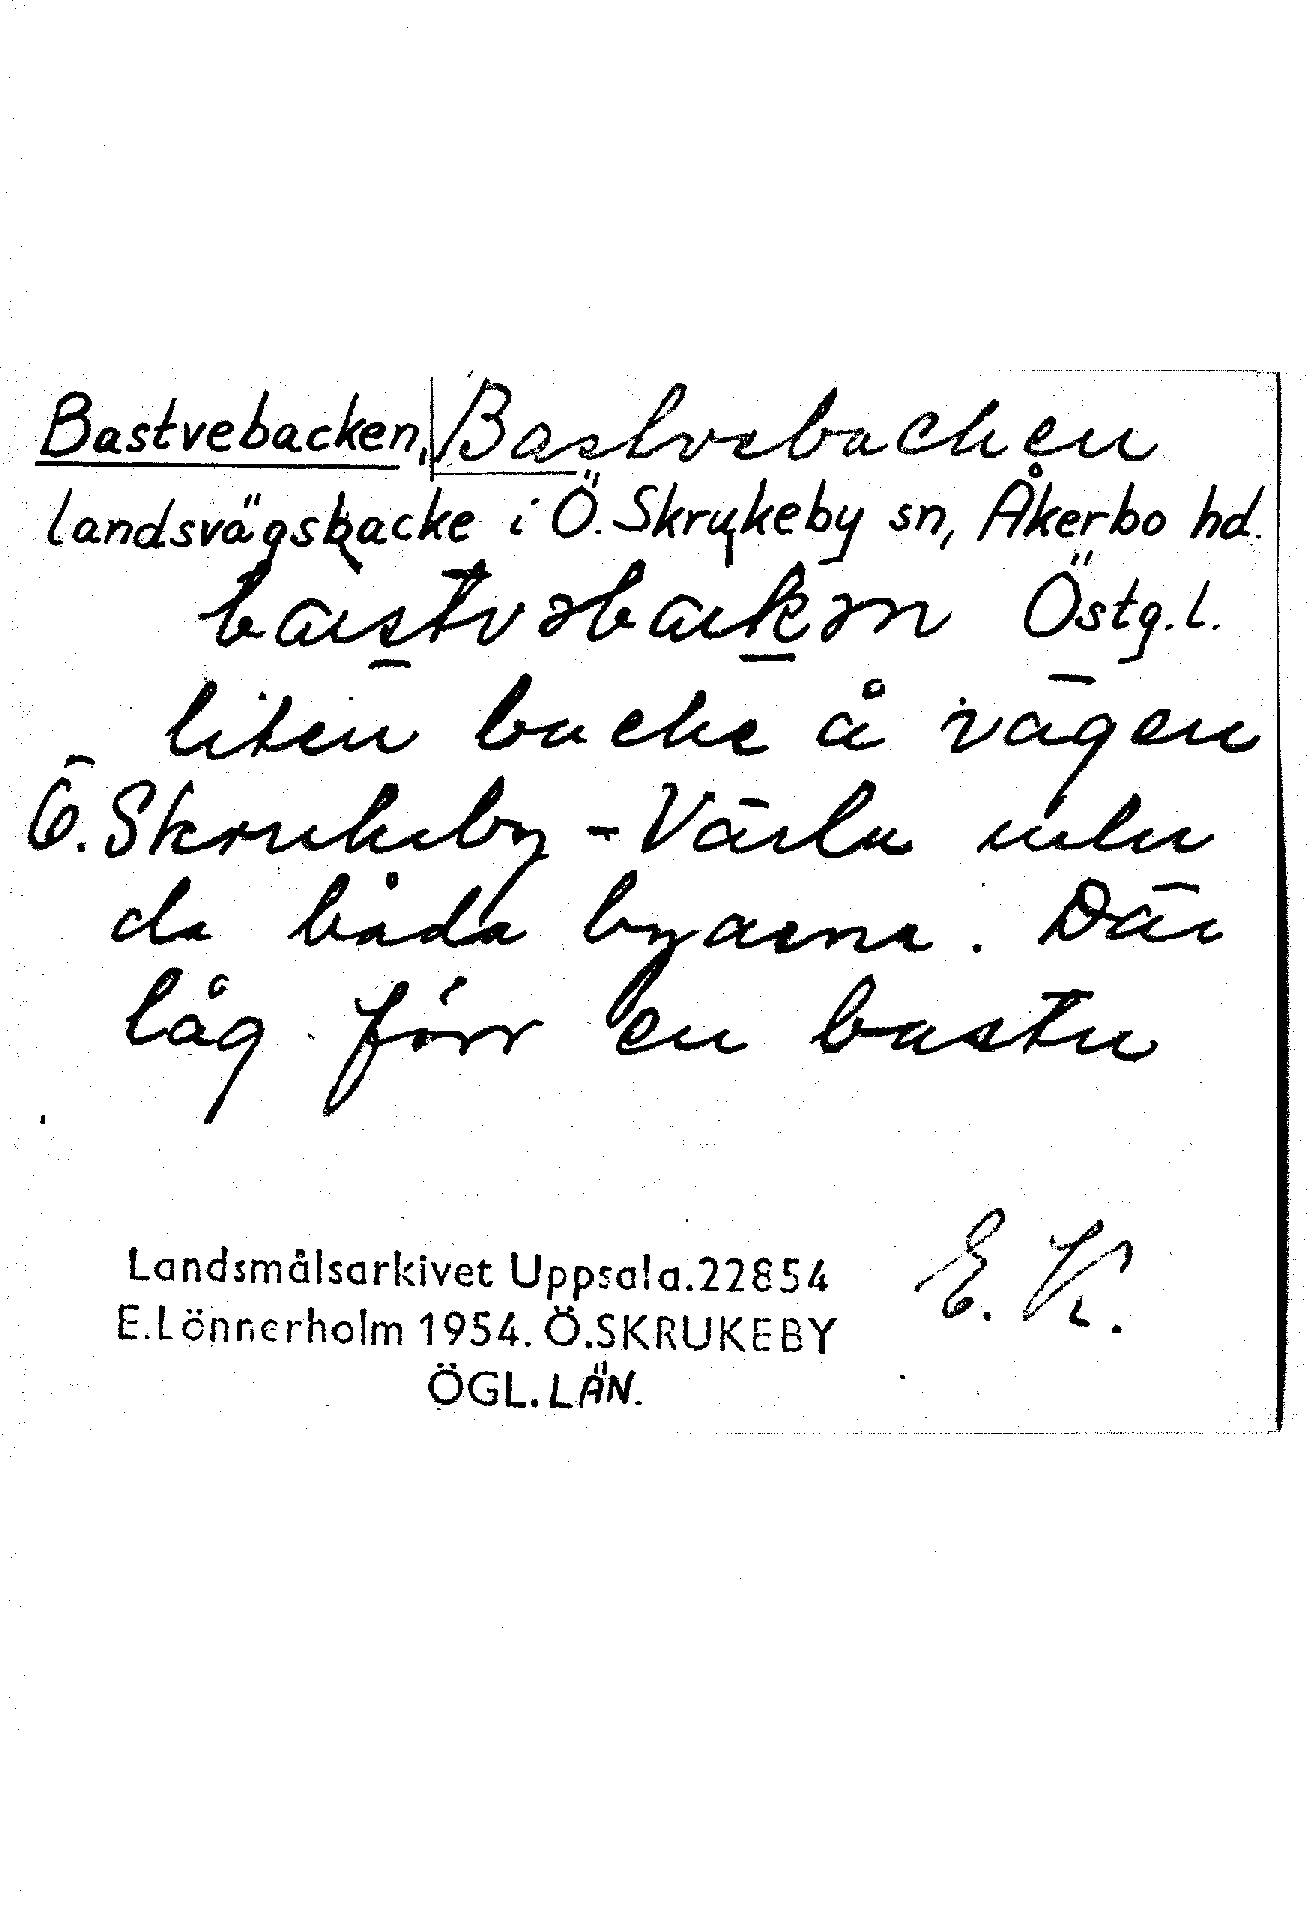 Bastvebacken, Bastvebacken
landsvägsbacke i Ö. Skrukeby sn, Åkerbo hd.
bastvəbakən Östg. l.
liten backe å vägen
Ö. Skrukeby - Värla
de båda byarna. Där
låg förr en bastu
E. K.
Landsmålsarkivet Uppsala.22854
E.Lönnerholm 1954. Ö.SKRUKEBY
ÖGL. LÄN.